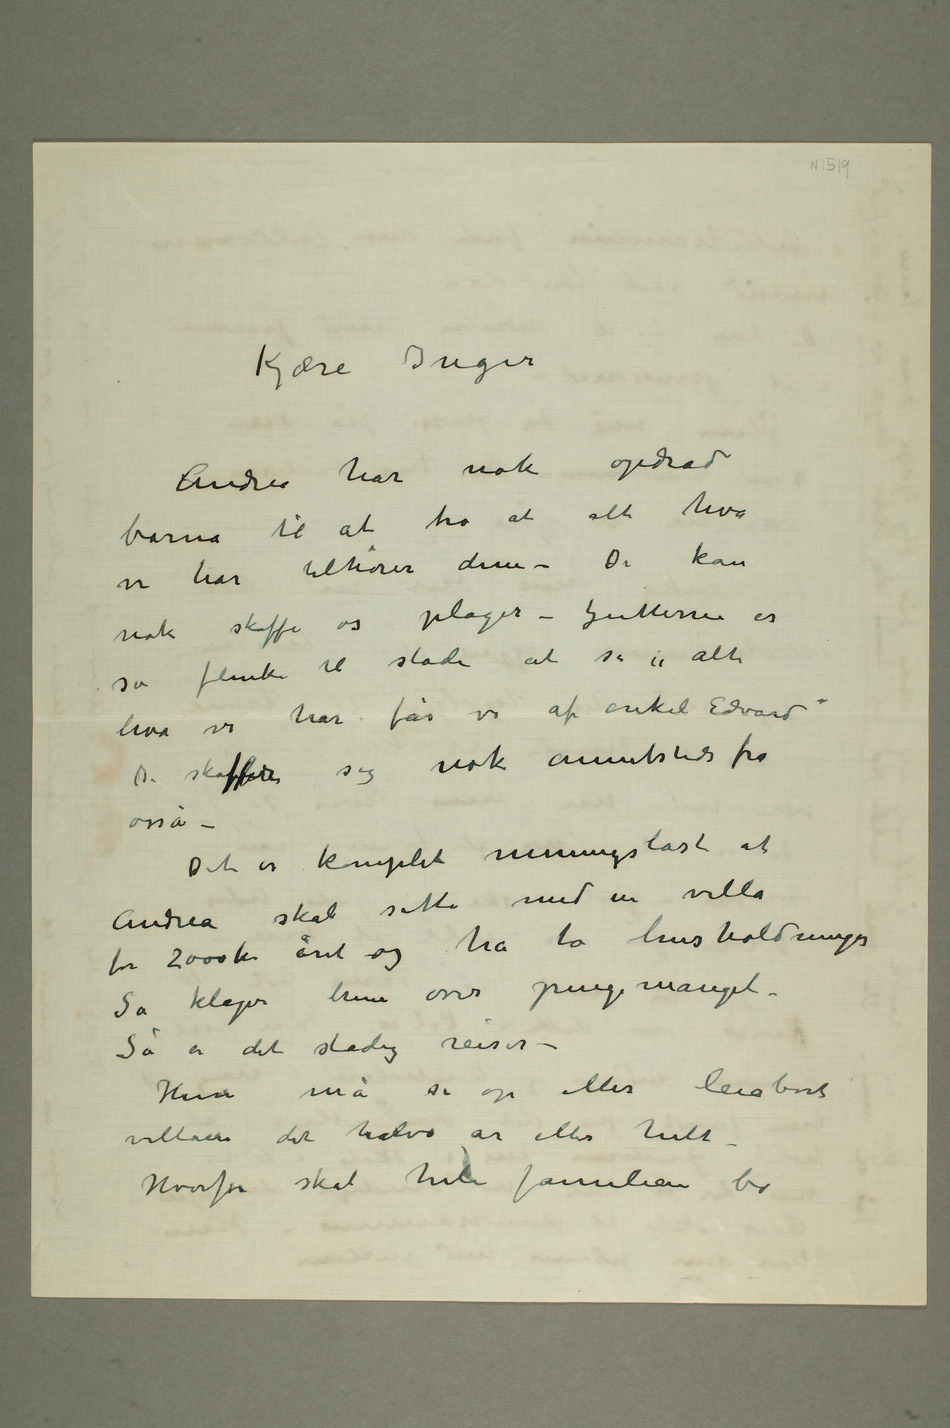 N1519
Kjære Inger
Andrea har nok opdrad
barna til at tro at alt hva
vi har tilhører dem – De kan
nok skaffe os plager – Gutterne er
så flinke til stadi at si „ alt
hva vi har får vi af onkel Edvard"
De skaffer sig nok annetsteds fra
osså –
Det er komplet meningsløst at
Andrea skal sitte med en villa
for 2000 kr året og ha to husholdninger
Så klager hun over pengemangel –
Så er det stadig reiser –
Hun må si op eller leiabort
villaen det halve år eller helt –
Hvorfor skal hele familien bo